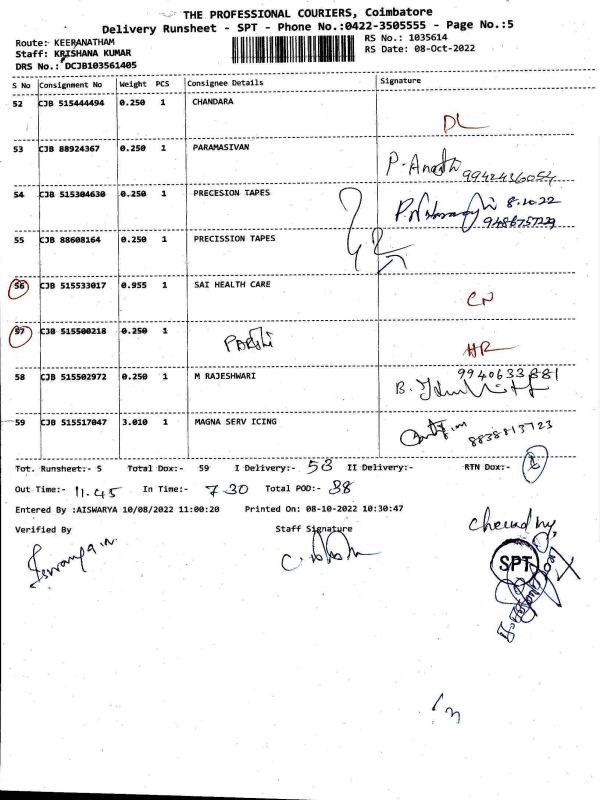 THE PROFESSIONAL COURIERS, Coimbatore
Delivery Runsheet - SPT - Phone No.:0422-3505555 - Page No.:5
Route:- KEERANATHAM
RS No.: 1035614
Staff: KRISHANA KUMAR
RS Date: 08-Oct-2022
DRS No.: DCJB103561405
S No Consignment No Weight PCS Consignee Details Signature
52 CJB 515444494 0.250 1 CHANDARA
DL
53 CJB 88924367 0.250 1 PARAMASIVAN
P-Ananth
9942436054
54 CJB 515304630 0.250 1 PRECESION TAPES
8.10.22
9486757229
55 CJB 88608164 0.250 1 PRECISSION TAPES
56 CJB 515533017 0.955 1 SAI HEALTH CARE
CN
57 CJB 515500218 0.250 1
HR
58 CJB 515502972 0.250 1 M RAJESHWARI
9940633881
B.
59 CJB 515517047 3.010 1 MAGNA SERV ICING
8838813723
Tot. Runsheet:- 5 Total Dox:- 59 I Delivery:- 53 II Delivery:- RTN Dox:- 6
Out Time:- 11.45 In Time:- 7.30 Total POD:- 38
Entered By :AISWARYA 10/08/2022 11:00:20 Printed On: 08-10-2022 10:30:47
Verified By Staff Signature
SPT